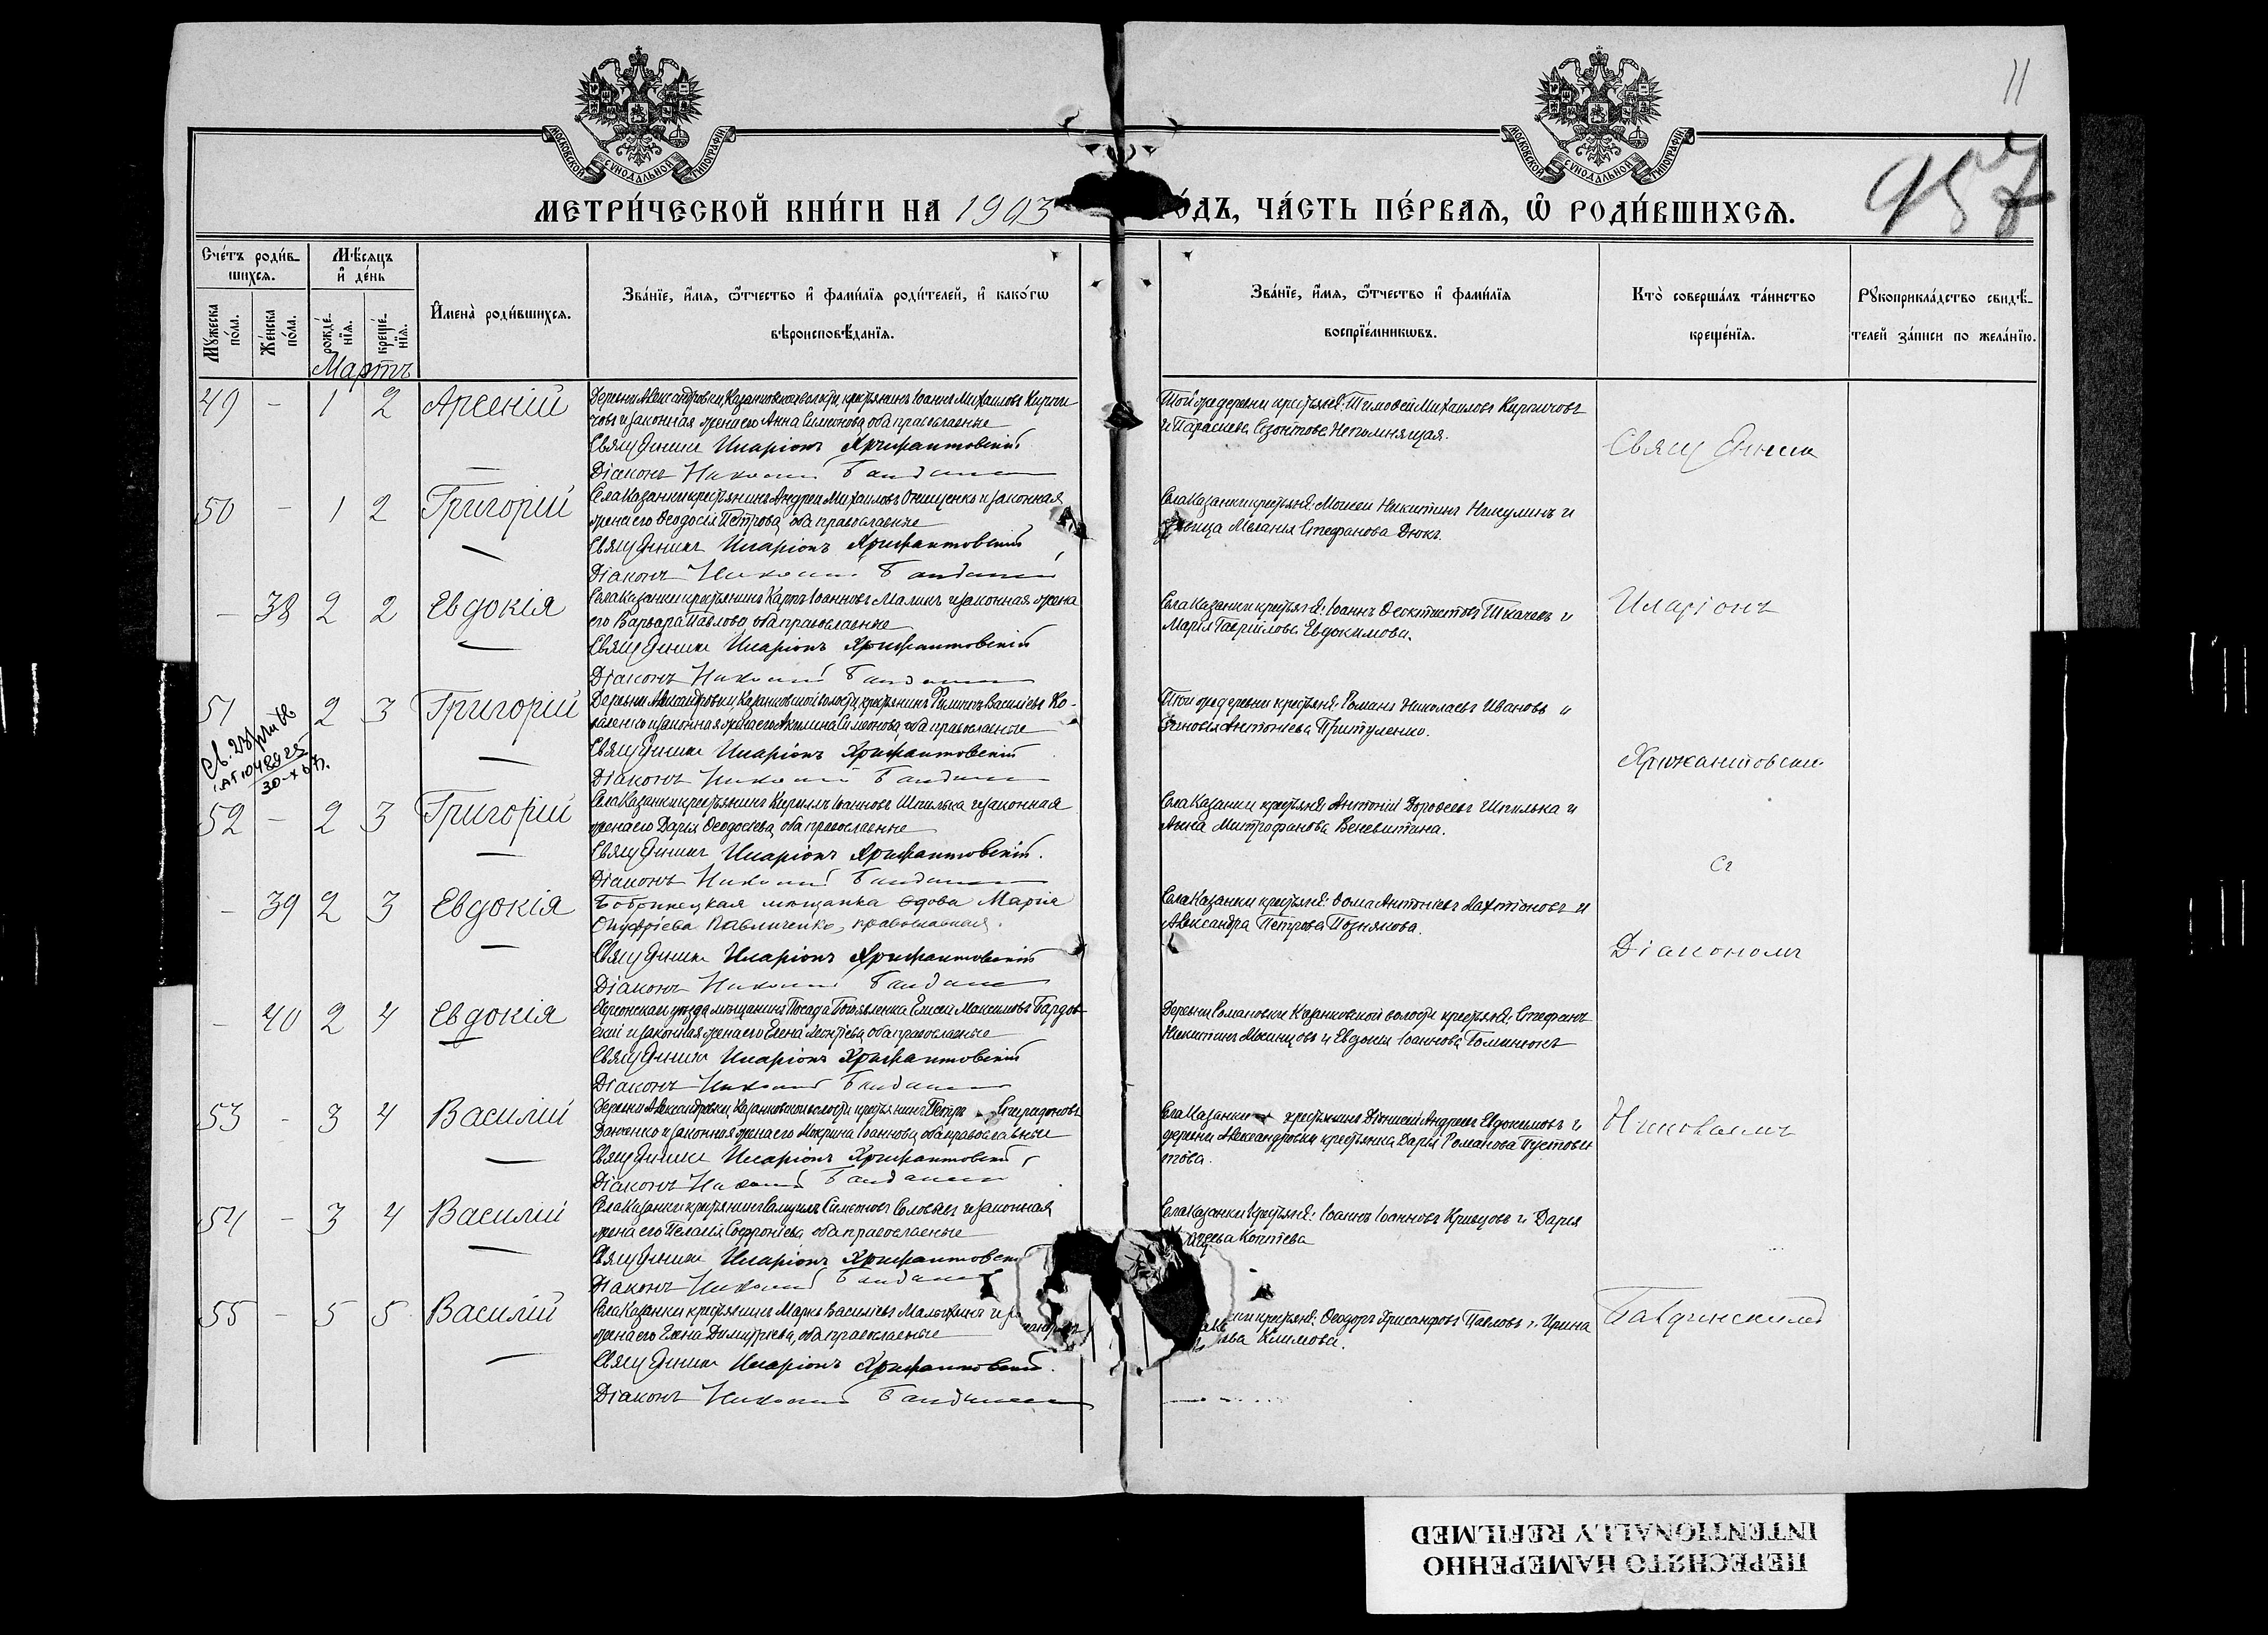 11
957
МОСКОВСКОЙ СѴНОДАЛЬНОЙ ТИПОГРАФІИ
МОСКОВСКОЙ СѴНОДАЛЬНОЙ ТИПОГРАФІИ
МЕТРИ́ЧЕСКОЙ КНИ́ГИ НА 1903
О́ДЪ, ЧА́СТЬ ПЕ́РВАѦ, Ѽ РОДИ́ВШИХСѦ.
Сче́тъ роди́в-
шихсѧ.
Мѣ́сѧцъ
и҆ де́нь
Мꙋ́жеска
по́ла.
Же́нска
по́ла.
рожде́-
нїѧ.
креще́-
нїѧ.
И҆мена̀ роди́вшихсѧ.
Зва́нїе, и҆́мѧ, ѻ҆́тчество и҆ фами́лїѧ роди́телей, и҆ како́гѡ
вѣроисповѣ́данїѧ.
Зва́нїе, и҆́мѧ, ѻ҆́тчество и҆ фами́лїѧ
воспрїе́мникѡвъ.
Кто̀ соверша́лъ та́инство
креще́нїѧ.
Рꙋкоприкла́дство свидѣ́-
телей за́писи по жела́нїю.
Мартъ
49 - 1 2 Арсеній
Деревни Александровки, Казанковской волости, крестьянинъ Іоаннъ Михаиловъ Кирпи
човъ и законная жена его Анна Симеонова, оба православные
Священникъ Иларіонъ Хрисантовскій
Діаконъ Николай
Той же деревни крестьяне: Тимофей Михаиловъ Кирпичовъ
и Параскева Созонтова Непомнящая.
50 - 1 2 Григорій
Села Казанки крестьянинъ Андрей Михаиловъ Онищенко и законная
жена его Ѳеодосія Петрова, оба православные
Священникъ Иларіонъ Хрисантовскій
Діаконъ Николай
Села Казанки крестьяне: Моисей Никитинъ Никулинъ и
Меланія Стефанова Дюкъ.
- 38 2 2 Евдокія
Села Казанки крестьянинъ Карпъ Іоанновъ Малинъ и законная жена
его Варвара Павлова, оба православные
Священникъ Иларіонъ Хрисантовскій
Діаконъ Николай
Села Казанки крестьяне: Іоаннъ Ѳеоктистовъ Ткачевъ и
Марія Гавріилова Евдокимова.
51 2 3 Григорій
Деревни Александровки, Казанковской волости, крестьянинъ Филиппъ Васильевъ Ко-
валенко и законная жена его Акилина Симонова, оба православные
Священникъ Иларіонъ Хрисантовскій
Діаконъ Николай
Той же деревни крестьяне: Романъ Николаевъ Ивановъ и
Зиновія Антоніева Притуленко.
52 - 2 3 Григорій
Села Казанки крестьянинъ Кириллъ Іоанновъ Шпилька и законная
жена его Дарья Ѳеодосіева, оба православные
Священникъ Иларіонъ Хрисантовскій.
Діаконъ Николай
Села Казанки крестьяне: Антоній Дороѳеевъ Шпилька и
Анна Митрофанова Веневитина.
- 39 2 3 Евдокія
Бобринецкая мѣщанка вдова Марія
Онуфріева Павличенко, православная.
Священникъ Иларіонъ Хрисантовскій
Діаконъ Николай
Села Казанки крестьяне: Ѳома Антоніевъ Лахтіоновъ и
Александра Петрова Познякова.
- 40 2 4 Евдокія
Херсонскаго уѣзда мѣщанинъ Посада Богоявленка Елисей Максимовъ Бардов
скій и законная жена его Елена Леонтіева, оба православные
Священникъ Иларіонъ Хрисантовскій
Діаконъ Николай
Деревни Романовки Казанковской волости крестьяне: Стефанъ
Никитинъ и Евдокія Іоаннова
53 - 3 4 Василій
Деревни Александровки, Казанковской волости крестьянинъ Петръ Спиридоновъ
Данченко и законная жена его Макрина Іоаннова, оба православные
Священникъ Иларіонъ Хрисантовскій
Діаконъ Николай
Села Казанки крестьянинъ Діонисій Андреевъ Евдокимовъ и
деревни Александровки крестьянка Дарья Романова Пустови
това.
54 - 3 4 Василій
Села Казанки крестьянинъ Самуилъ Симеоновъ Соловьевъ и законная
жена его Пелагія Софроніева, оба православные
Священникъ Иларіонъ Хрисантовскій
Діаконъ Николай
Села Казанки крестьяне: Іоаннъ Іоанновъ Кривцовъ и Дарья
Коптева
55 - 5 5 Василій
Села Казанки крестьянинъ Маркъ Васильевъ Малыхинъ и
жена его Елена Димитріева, оба православные
Священникъ Иларіонъ Хрисантовскій.
Діаконъ Николай
крестьяне: Ѳеодоръ Хрисанфовъ Павловъ и Ирина
Климова.
Священникъ
Иларіонъ
Хрисантовскій
съ
Діакономъ
Николаемъ
ПЕРЕСНЯТО НАМЕРЕННО
INTENTIONALLY REFILMED